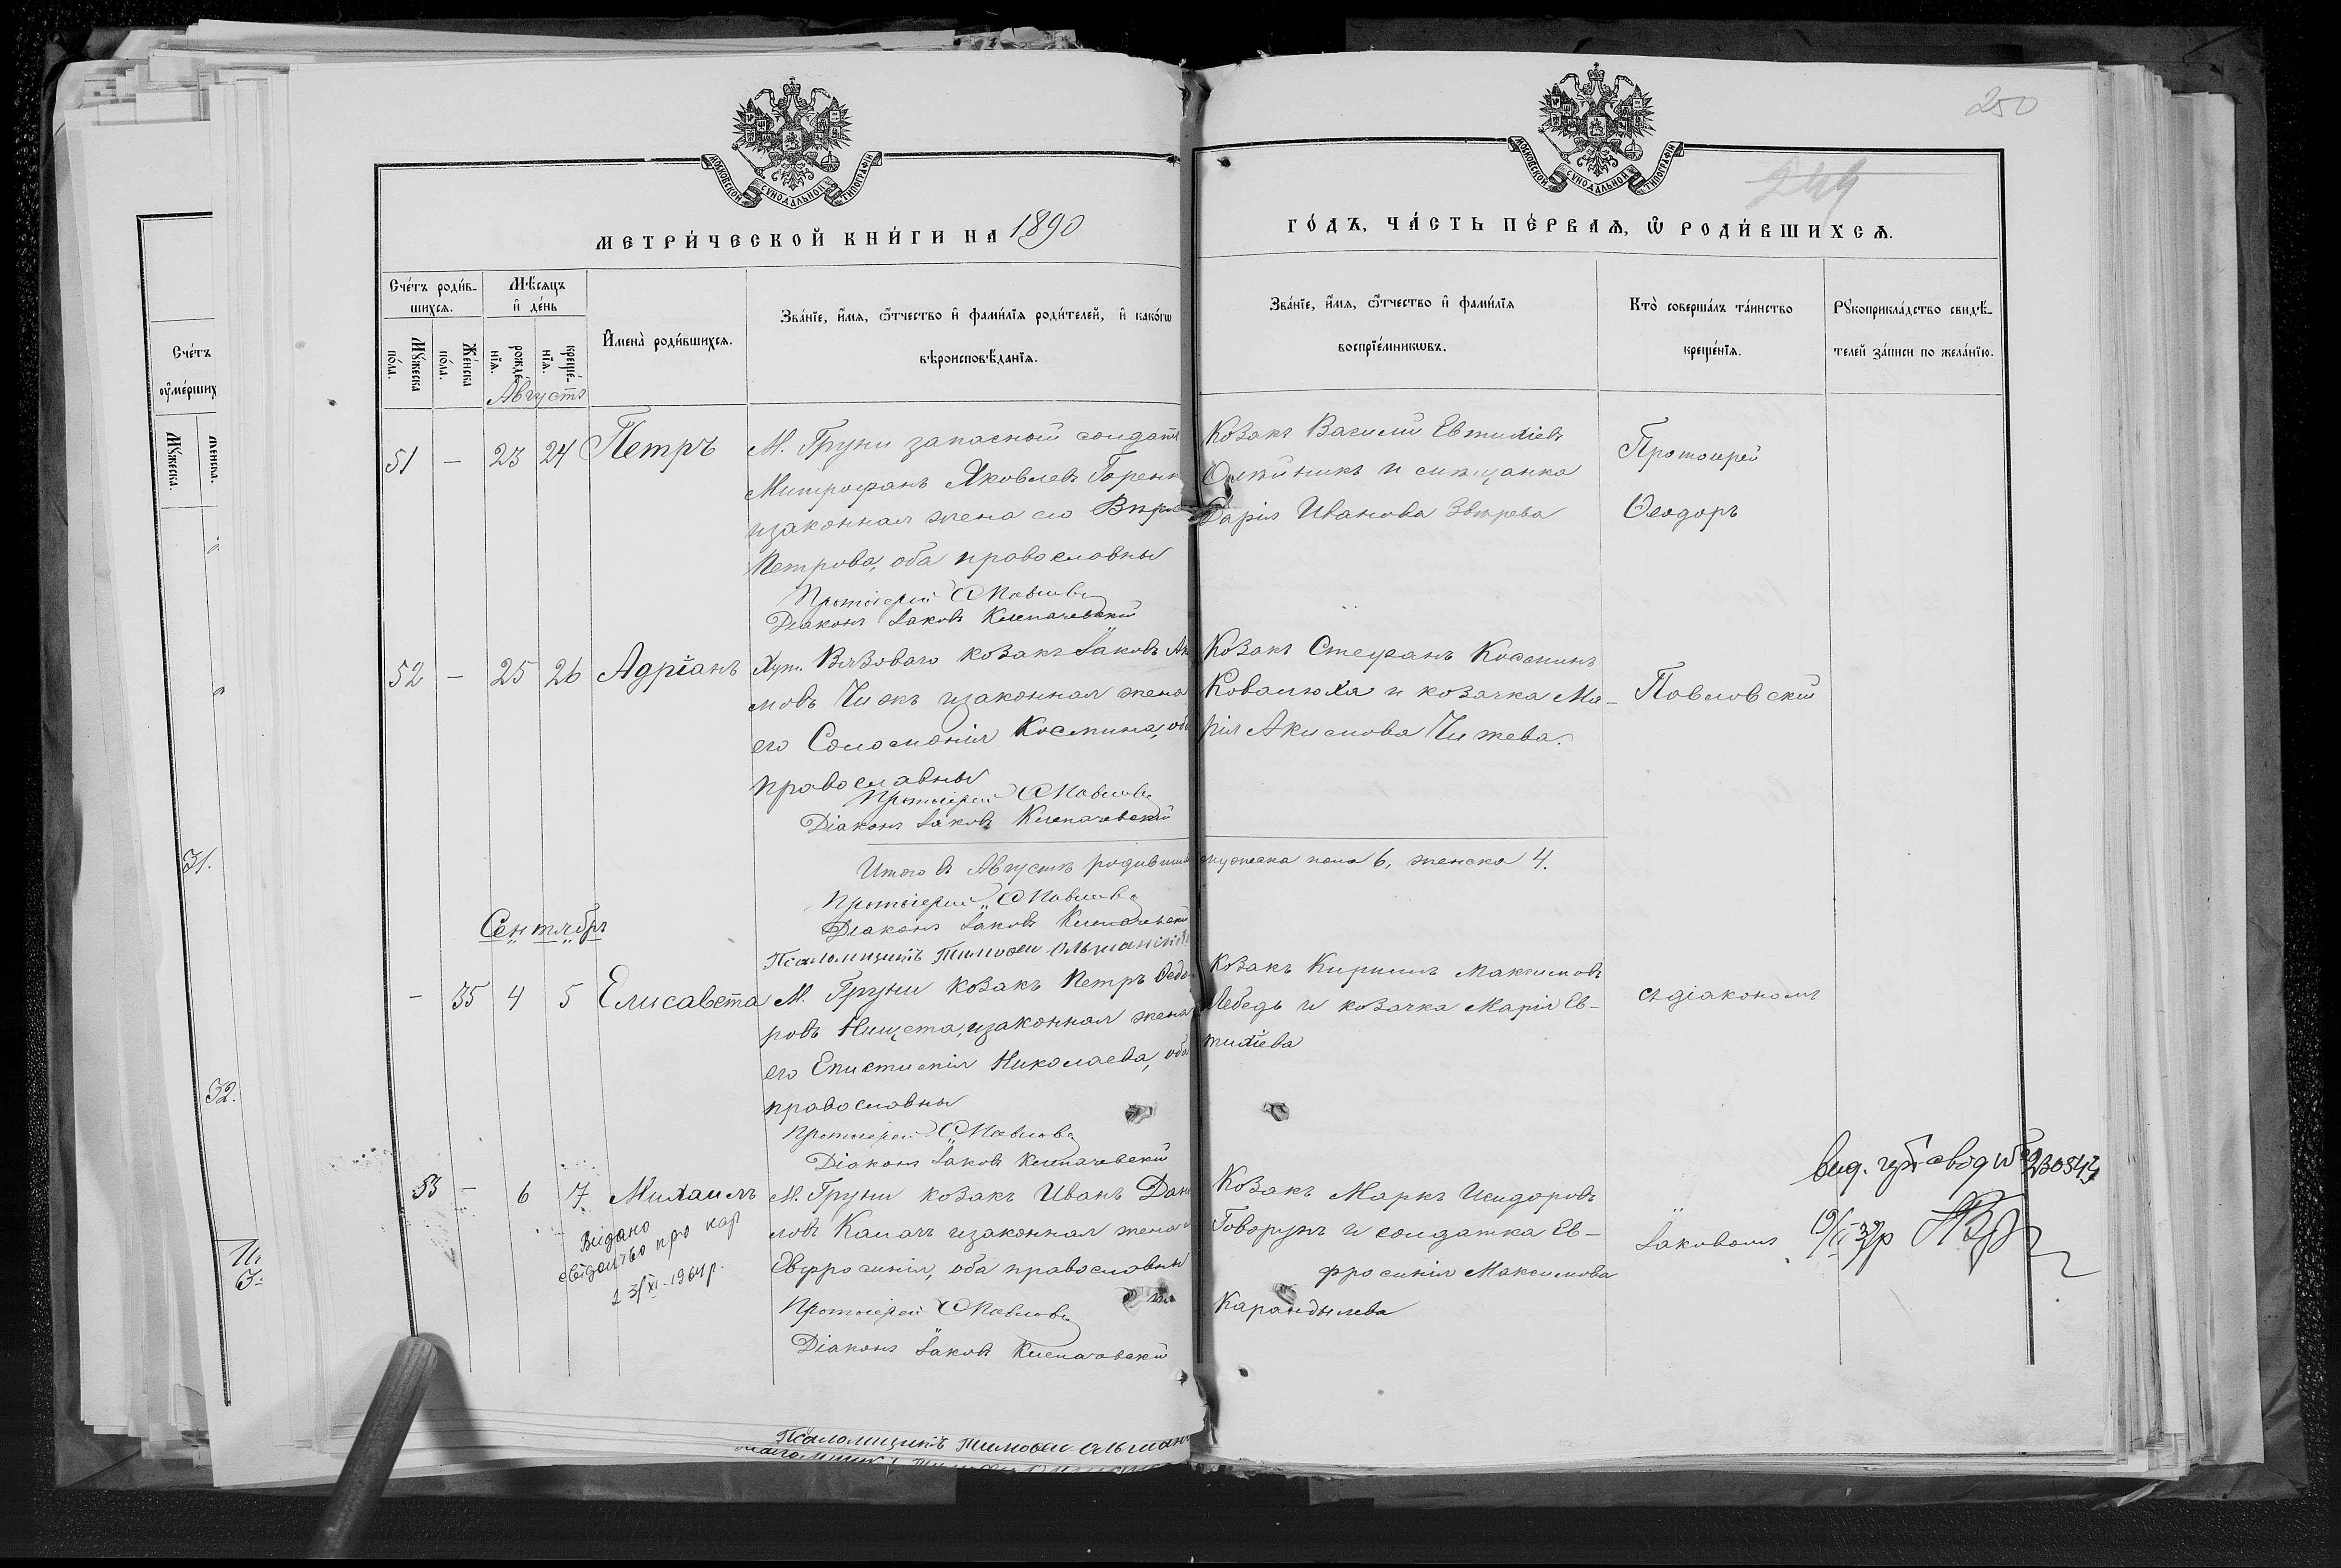 250
249
МОСКОВСКОЙ СѴНОДАЛЬНОЙ ТИПОГРАФІИ
МОСКОВСКОЙ СѴНОДАЛЬНОЙ ТИПОГРАФІИ
МЕТРИ́ЧЕСКОЙ КНИ́ГИ НА 1890
ГО́ДЪ, ЧА́СТЬ ПЕ́РВАѦ, Ѽ РОДИ́ВШИХСѦ.
Сче́тъ роди́в-
шихсѧ.
Мѣ́сѧцъ
и҆ де́нь
Мꙋ́жеска
по́ла.
Же́нска
по́ла.
рожде́-
нїѧ.
креще́-
нїѧ.
И҆мена̀ роди́вшихсѧ.
Зва́нїе, и҆́мѧ, ѻ҆́тчество и҆ фами́лїѧ роди́телей, и҆ како́гѡ
вѣроисповѣ́данїѧ.
Зва́нїе, и҆́мѧ, ѻ҆́тчество и҆ фами́лїѧ
воспрїе́мникѡвъ.
Кто̀ соверша́лъ та́инство
креще́нїѧ.
Рꙋкоприкла́дство свидѣ́-
телей за́писи по жела́нїю.
Августъ
51 – 23 24 Петръ
М. Груни запасной солдатъ
Митрофанъ Яковлевъ Горенк
изаконная жена его Вѣра
Петрова, оба православны
Протоіерей Ѳ Павловс
Діаконъ Іаковъ Клепачевскій
Козакъ Василій Евтихіевъ
Олѣйникъ и мѣщанка
Дарія Иванова Звѣрева
Протоиерей
Ѳеодоръ
52 – 25 26 Адріанъ
Хут. Вязоваго козакъ Іаковъ Аки
мовъ Чижъ изаконная жена
его Соломонія Космина, оба
православны
Протоіерей Ѳ Павловс
Діаконъ Іаковъ Клепачевскій
Козакъ Стефанъ Косминъ
Ковалюха и козачка Ма-
рія Акимова Чижева.
Павловскій
Итого въ Августѣ родивши мужеска пола 6, женска 4.
Протоіерей Ѳ Павловс
Діаконъ Іаковъ Клепачевскій
Псаломщикъ Тимоѳей Ольшанскій
Сентябрь
– 35 4 5 Елисавета
М. Груни козакъ Петръ Ѳедо
ровъ Нищета, изаконная жена
его Епистимія Николаева, оба
православны
Протоіерей Ѳ Павловс
Діаконъ Іаковъ Клепачевскій
Козакъ Кириллъ Максимовъ
Лебедь и козачка Марія Ев-
тихіева
съ діакономъ
53 – 6 7 Михаилъ
Видано
свідоцтво про нар
з 3/XI-1964р.
М. Груни козакъ Иванъ Дани
ловъ Калачъ изаконная жена
Евфросинія, оба православны
Протоіерей Ѳ Павловс
Діаконъ Іаковъ Клепачевскій
Козакъ Маркъ Исидоровъ
Говорунъ и солдатка Ев-
фросинія Максимова
Карандылева
Іаковомъ
Псаломщикъ Тимоѳей Ольшанс
Счетъ
ѹ҆ме́рших
Мꙋ́жеска.
Же́нска.
31.
32.